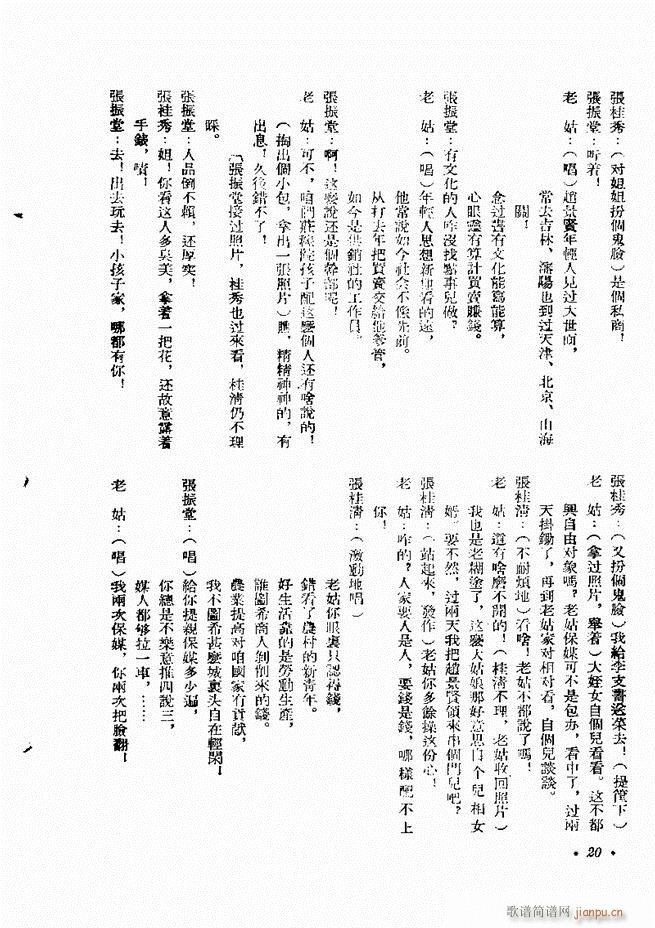 張桂秀：（对姐姐扮個鬼臉）是個私商！
張振堂：听着！
老　姑：（唱）趙景賢年輕人見过大世面，
常去吉林、瀋陽也到过天津、北京、山海
關！
念过書有文化能寫能算，
心眼灵有算計買賣賺錢。
張振堂：有文化的人咋沒找點事兒做？
老　姑：（唱）年輕人思想新他看的遠，
他常說如今社会不像先前。
从打去年把買賣交給他爹管，
如今是供銷社的工作員。
張振堂：啊！这麽說还是個幹部呢！
老　姑：可不，咱們莊稼院孩子配这麽個人还有啥說的！
（掏出個小包，拿出一張照片）瞧，精精神神的，有
出息！久後錯不了！
（張振堂接过照片，桂秀也过來看，桂淸仍不理
睬。
張振堂：人品倒不賴，还厚实！
張桂秀：姐！你看这人多臭美，拿着一把花，还故意露着
手錶，嘖！
張振堂：去！出去玩去！小孩子家，哪都有你！
張桂秀：（又扮個鬼臉）我給李支書送菜去！（提筐下）
老　姑：（拿过照片，舉着）大姪女自個兒看看。这不都
興自由对象嗎？老姑保媒可不是包办，看中了，过兩
天掛鋤了，再到老姑家对相对看，自個兒談談。
張桂淸：（不耐煩地）看啥！老姑不都說了嗎！
老　姑：這有啥磨不開的！（桂淸不理，老姑收回照片）
我也是老糊塗了，这麽大姑娘哪好意思自个兒相女
婿。要不然，过兩天我把趙景賢領來串個門兒吧？
張桂淸：（站起來，發作）老姑你多餘操这份心！
老　姑：咋的？人家要人是人，要錢是錢，哪樣配不上
你！
張桂淸：（激動地唱）
老姑你眼裏只認得錢，
錯看了農村的新靑年。
好生活靠的是勞動生產，
誰圖希商人剝削來的錢。
農業提高对咱國家有貢献，
我不圖希甚麽城裏头自在輕閑！
張振堂：（唱）給你提親保媒多少遍，
你總是不樂意推四說三，
媒人都够拉一車，……
老　姑：（唱）我兩次保媒，你兩次把臉翻！
• 20 •
歌谱简谱网
jianpu.cn